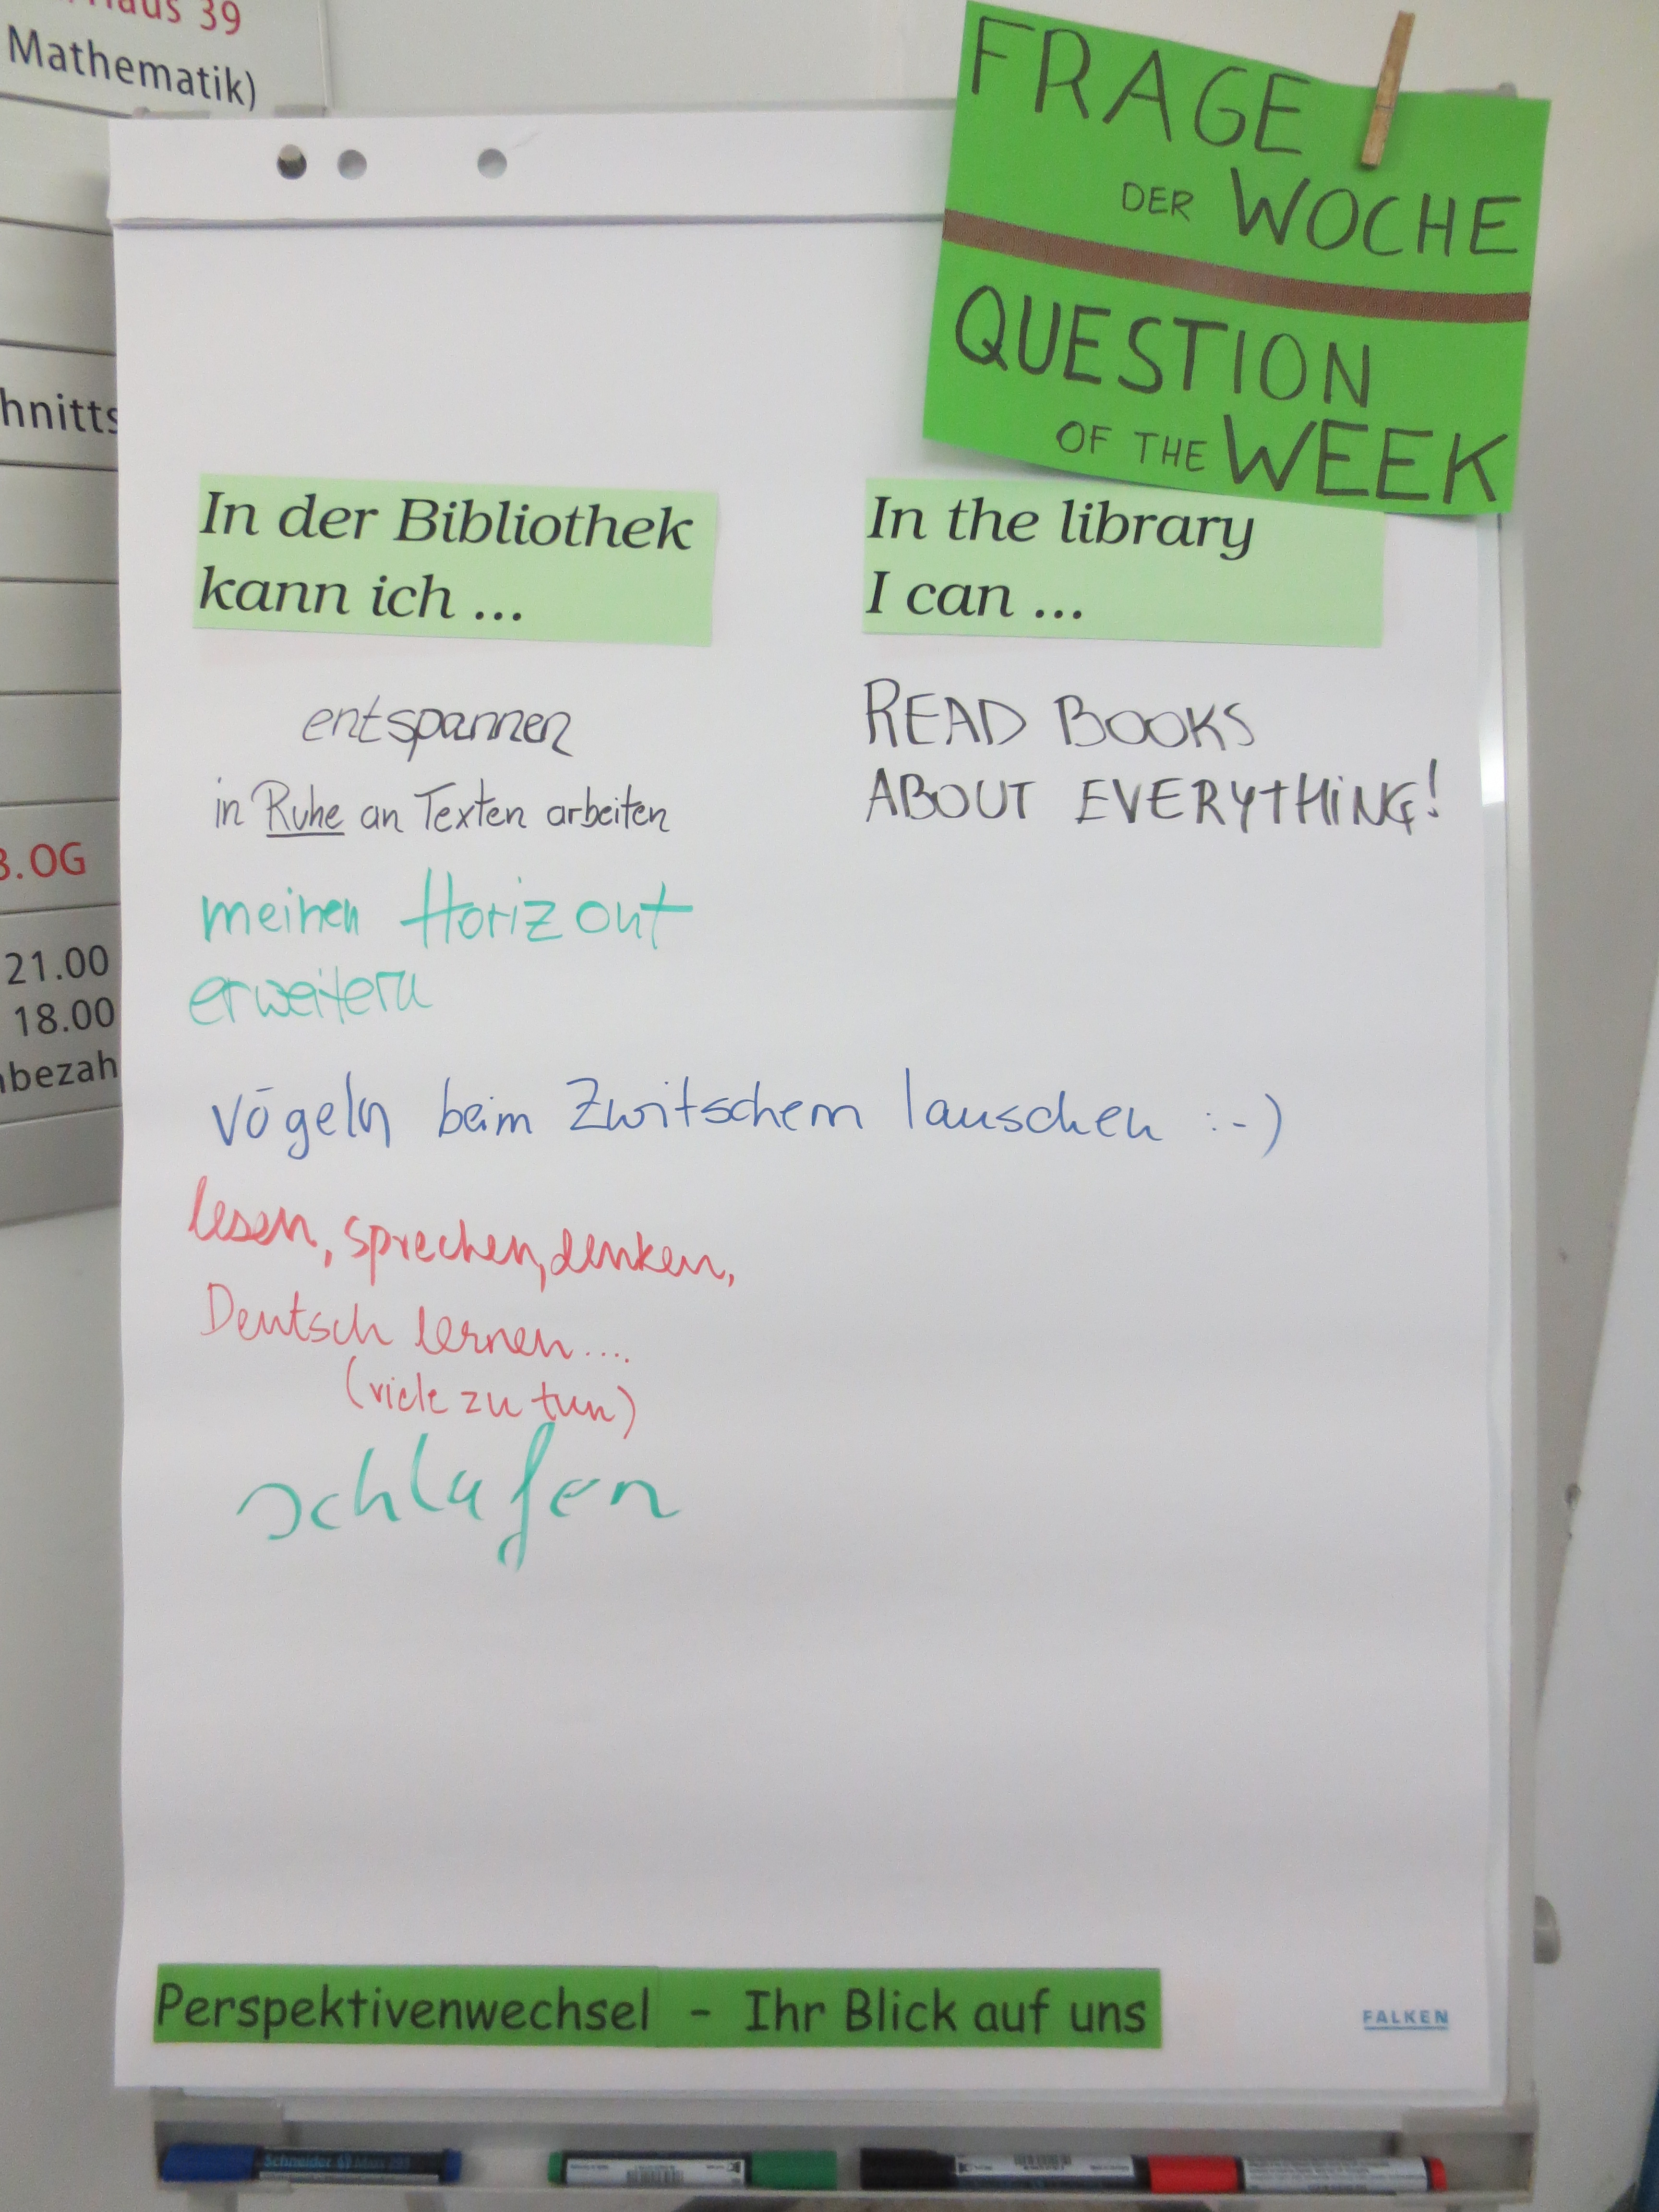 Haus 39
Mathematik)
hnitts
3.OG
21.00
18.00
nbezah
FRAGE
DER WOCHE
QUESTION
OF THE WEEK
In der Bibliothek
kann ich ...
entspannen
in Ruhe an Texten arbeiten
meinen Horizont
erweitern
vögeln beim Zwitschern lauschen :-)
lesen, sprechen, denken,
Deutsch lernen....
(viele zu tun)
schlafen
In the library
I can ...
READ BOOKS
ABOUT EVERYTHING!
Perspektivenwechsel - Ihr Blick auf uns
FALKEN
Schneider Maxx 293